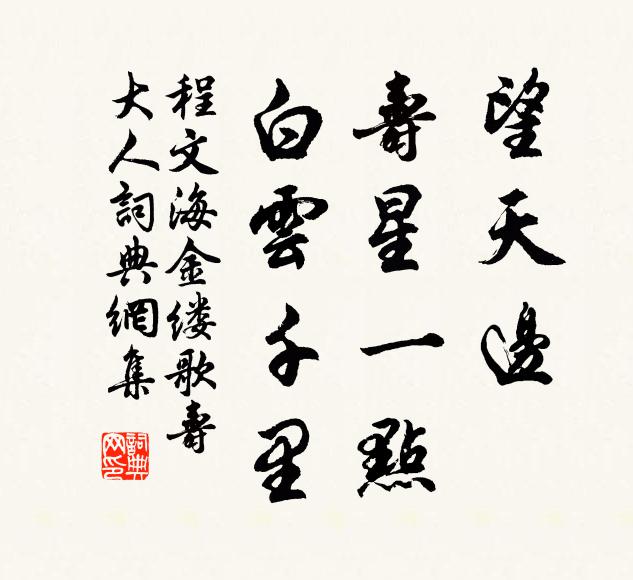 望天邊
壽星一點
白雲千里
程文海金缕歌壽
大人詞典網集
詞典網印